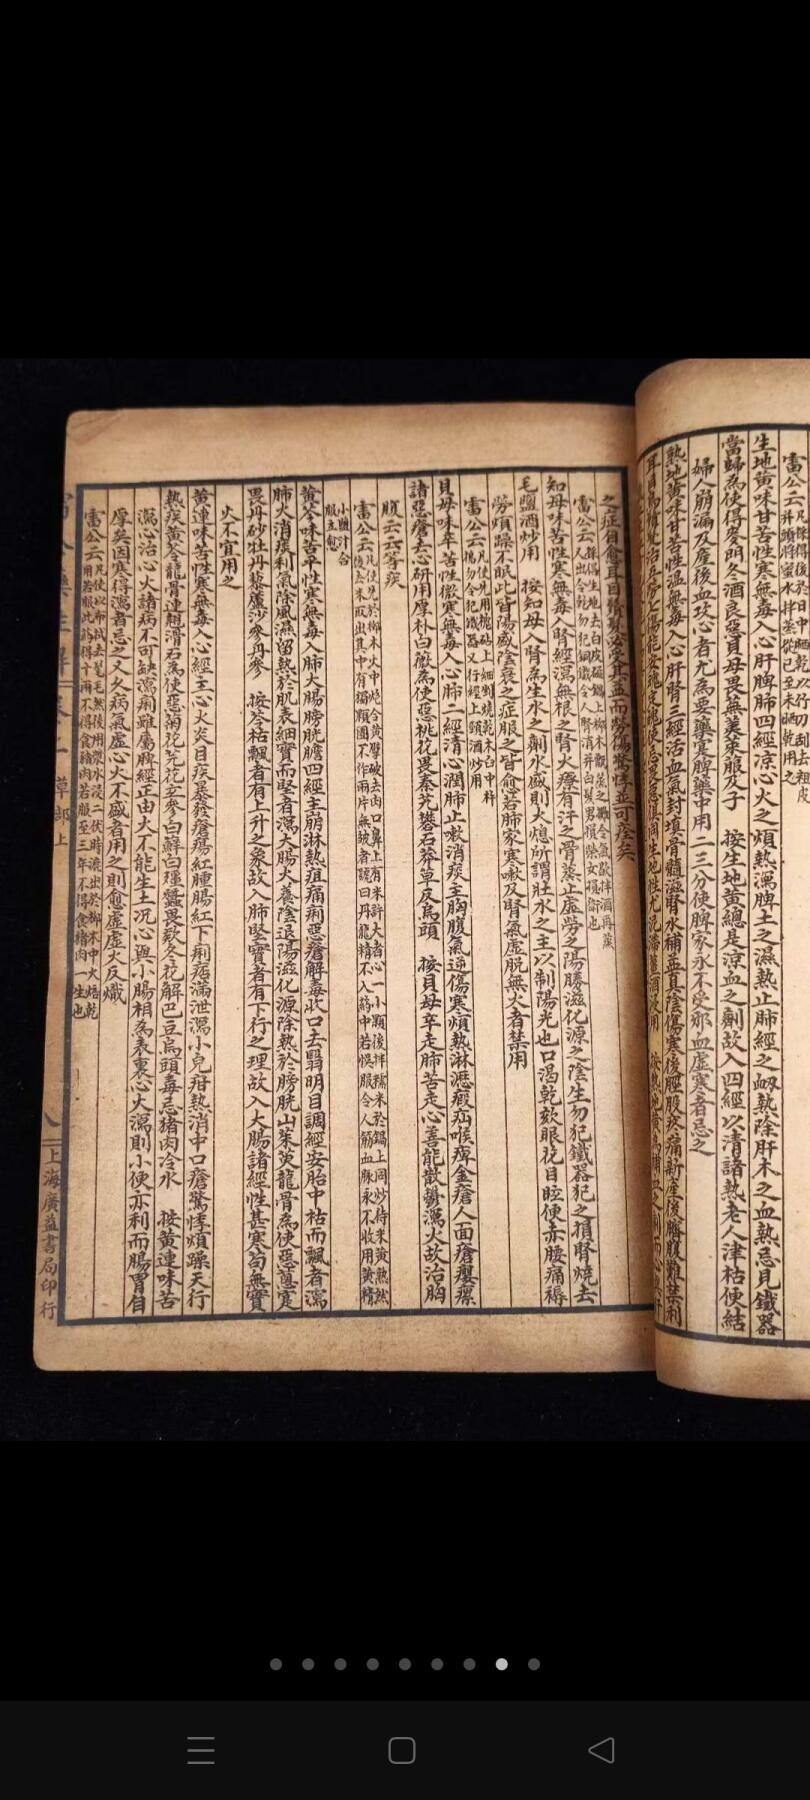 雷公云
生地黃味甘苦性寒無毒入心肝脾肺四經涼心火之煩熱瀉脾土之濕熱止肺經之衂熱除肝木之血熱忌見鐵器
當歸為使得麥門冬酒良惡貝母畏無荑萊菔及子 按生地黃總是涼血之劑故入四經以清諸熱老人津枯便結
婦人崩漏及產後血攻心者尤為要藥實脾藥中用二三分使脾家永不受邪血虛寒者忌之
熟地黃味甘苦性溫無毒入心肝腎三經活血氣封填骨髓滋腎水補益真陰傷寒後脛股疼痛新產後臍腹難禁利
知母味苦性寒無毒入腎經瀉無根之腎火療有汗之骨蒸止虛勞之陽勝滋化源之陰生勿犯鐵器犯之損腎燒去
毛鹽酒炒用 按知母入腎為生水之劑水盛則火熄所謂壯水之主以制陽光也口渴乾欬眼花目眩便赤腰痛褥
勞煩躁不眠此皆陽盛陰衰之症服之皆愈若肺家寒嗽及腎氣虛脫無火者禁用
雷公云凡使先用槐砧上細剉燒乾木臼中杵
搗勿令犯鐵器又行經上頸酒炒用
貝母味辛苦性微寒無毒入心肺二經清心潤肺止嗽消痰主胸腹氣逆傷寒煩熱淋瀝瘕疝喉痺金瘡人面瘡癭瘰
諸惡瘡去心研用厚朴白薇為使惡桃花畏秦艽礬石莽草反烏頭 按貝母辛走肺苦走心善能散鬱瀉火故治胸
腹云云等疾
雷公云凡使先於柳木火中炮令黃擘破去內口鼻上有米許大者心一小顆後拌糯米於鐺上同炒待米黃熟然
後去米取出其中有獨顆團不作兩片無皺者號曰丹龍精不入藥中若悞服令人筋血脈永不收用黃精
小鹽汁合
服立愈
黃芩味苦平性寒無毒入肺大腸膀胱膽四經主崩淋熱疽痛痢惡瘡解毒收口去翳明目調經安胎中枯而飄者瀉
肺火消痰利氣除風濕留熱於肌表細實而堅者瀉大腸火養陰退陽滋化源除熱於膀胱山茱萸龍骨為使惡蔥實
畏丹砂牡丹藜蘆沙參丹參 按芩枯飄者有上升之象故入肺堅實者有下行之理故入大腸諸經性甚寒苟無實
火不宜用之
黃連味苦性寒無毒入心經主心火炎目疾暴發瘡瘍紅腫腸紅下痢痞滿泄瀉小兒疳熱消中口瘡驚悸煩躁天行
熱疾黃芩龍骨連翹滑石為使惡菊花芫花玄參白鮮白殭蠶畏款冬花解巴豆烏頭毒忌猪肉冷水 按黃連味苦
瀉心治心火諸病不可缺瀉痢雖屬脾經正由火不能生土況心與小腸相為表裏心火瀉則小便亦利而腸胃自
厚矣因寒得瀉者忌之又久病氣虛心火不盛者用之則愈虛虛火反熾
雷公云凡使以布拭去毛然後用漿水浸二伏時漉出於柳木中火焙乾
用若服此藥得十兩不得食猪肉若服至三年不得食猪肉一生也
草部上
八
上海廣益書局印行